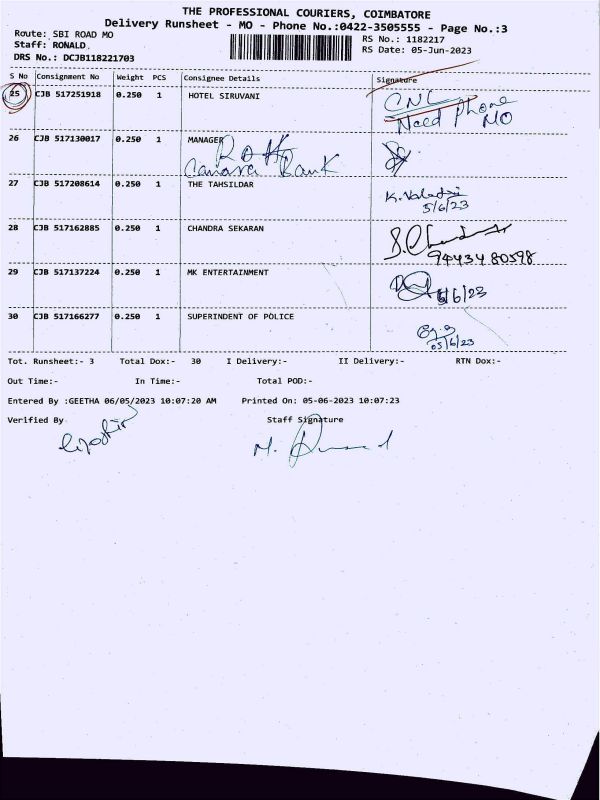 THE PROFESSIONAL COURIERS, COIMBATORE
Delivery Runsheet - MO - Phone No.:0422-3505555 - Page No.:3
Route: SBI ROAD MO
RS No.: 1182217
Staff: RONALD.
RS Date: 05-Jun-2023
DRS No.: DCJB118221703
S No Consignment No Weight PCS Consignee Details Signature
25 CJB 517251918 0.250 1 HOTEL SIRUVANI CNL
Need Phone
NO
26 CJB 517130017 0.250 1 MANAGER
Canara Bank
27 CJB 517208614 0.250 1 THE TAHSILDAR
5/6/23
28 CJB 517162885 0.250 1 CHANDRA SEKARAN
94434 80598
29 CJB 517137224 0.250 1 MK ENTERTAINMENT
5/6/23
30 CJB 517166277 0.250 1 SUPERINDENT OF POLICE
05/6/23
Tot. Runsheet:- 3 Total Dox:- 30 I Delivery:- II Delivery:- RTN Dox:-
Out Time:- In Time:- Total POD:-
Entered By :GEETHA 06/05/2023 10:07:20 AM Printed On: 05-06-2023 10:07:23
Verified By Staff Signature